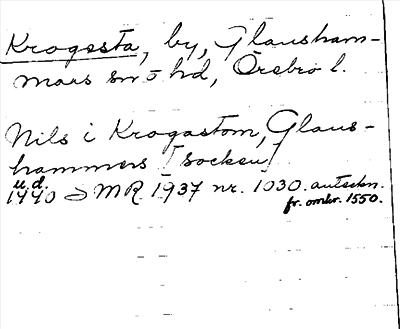 Krogesta, by, Glansham-
mars sn o hd, Örebro l.
Nils i Krogastom, Glans-
hammers [socken]
u.d.
1440 MR 1937 nr. 1030. anteckn.
fr. omkr. 1550.